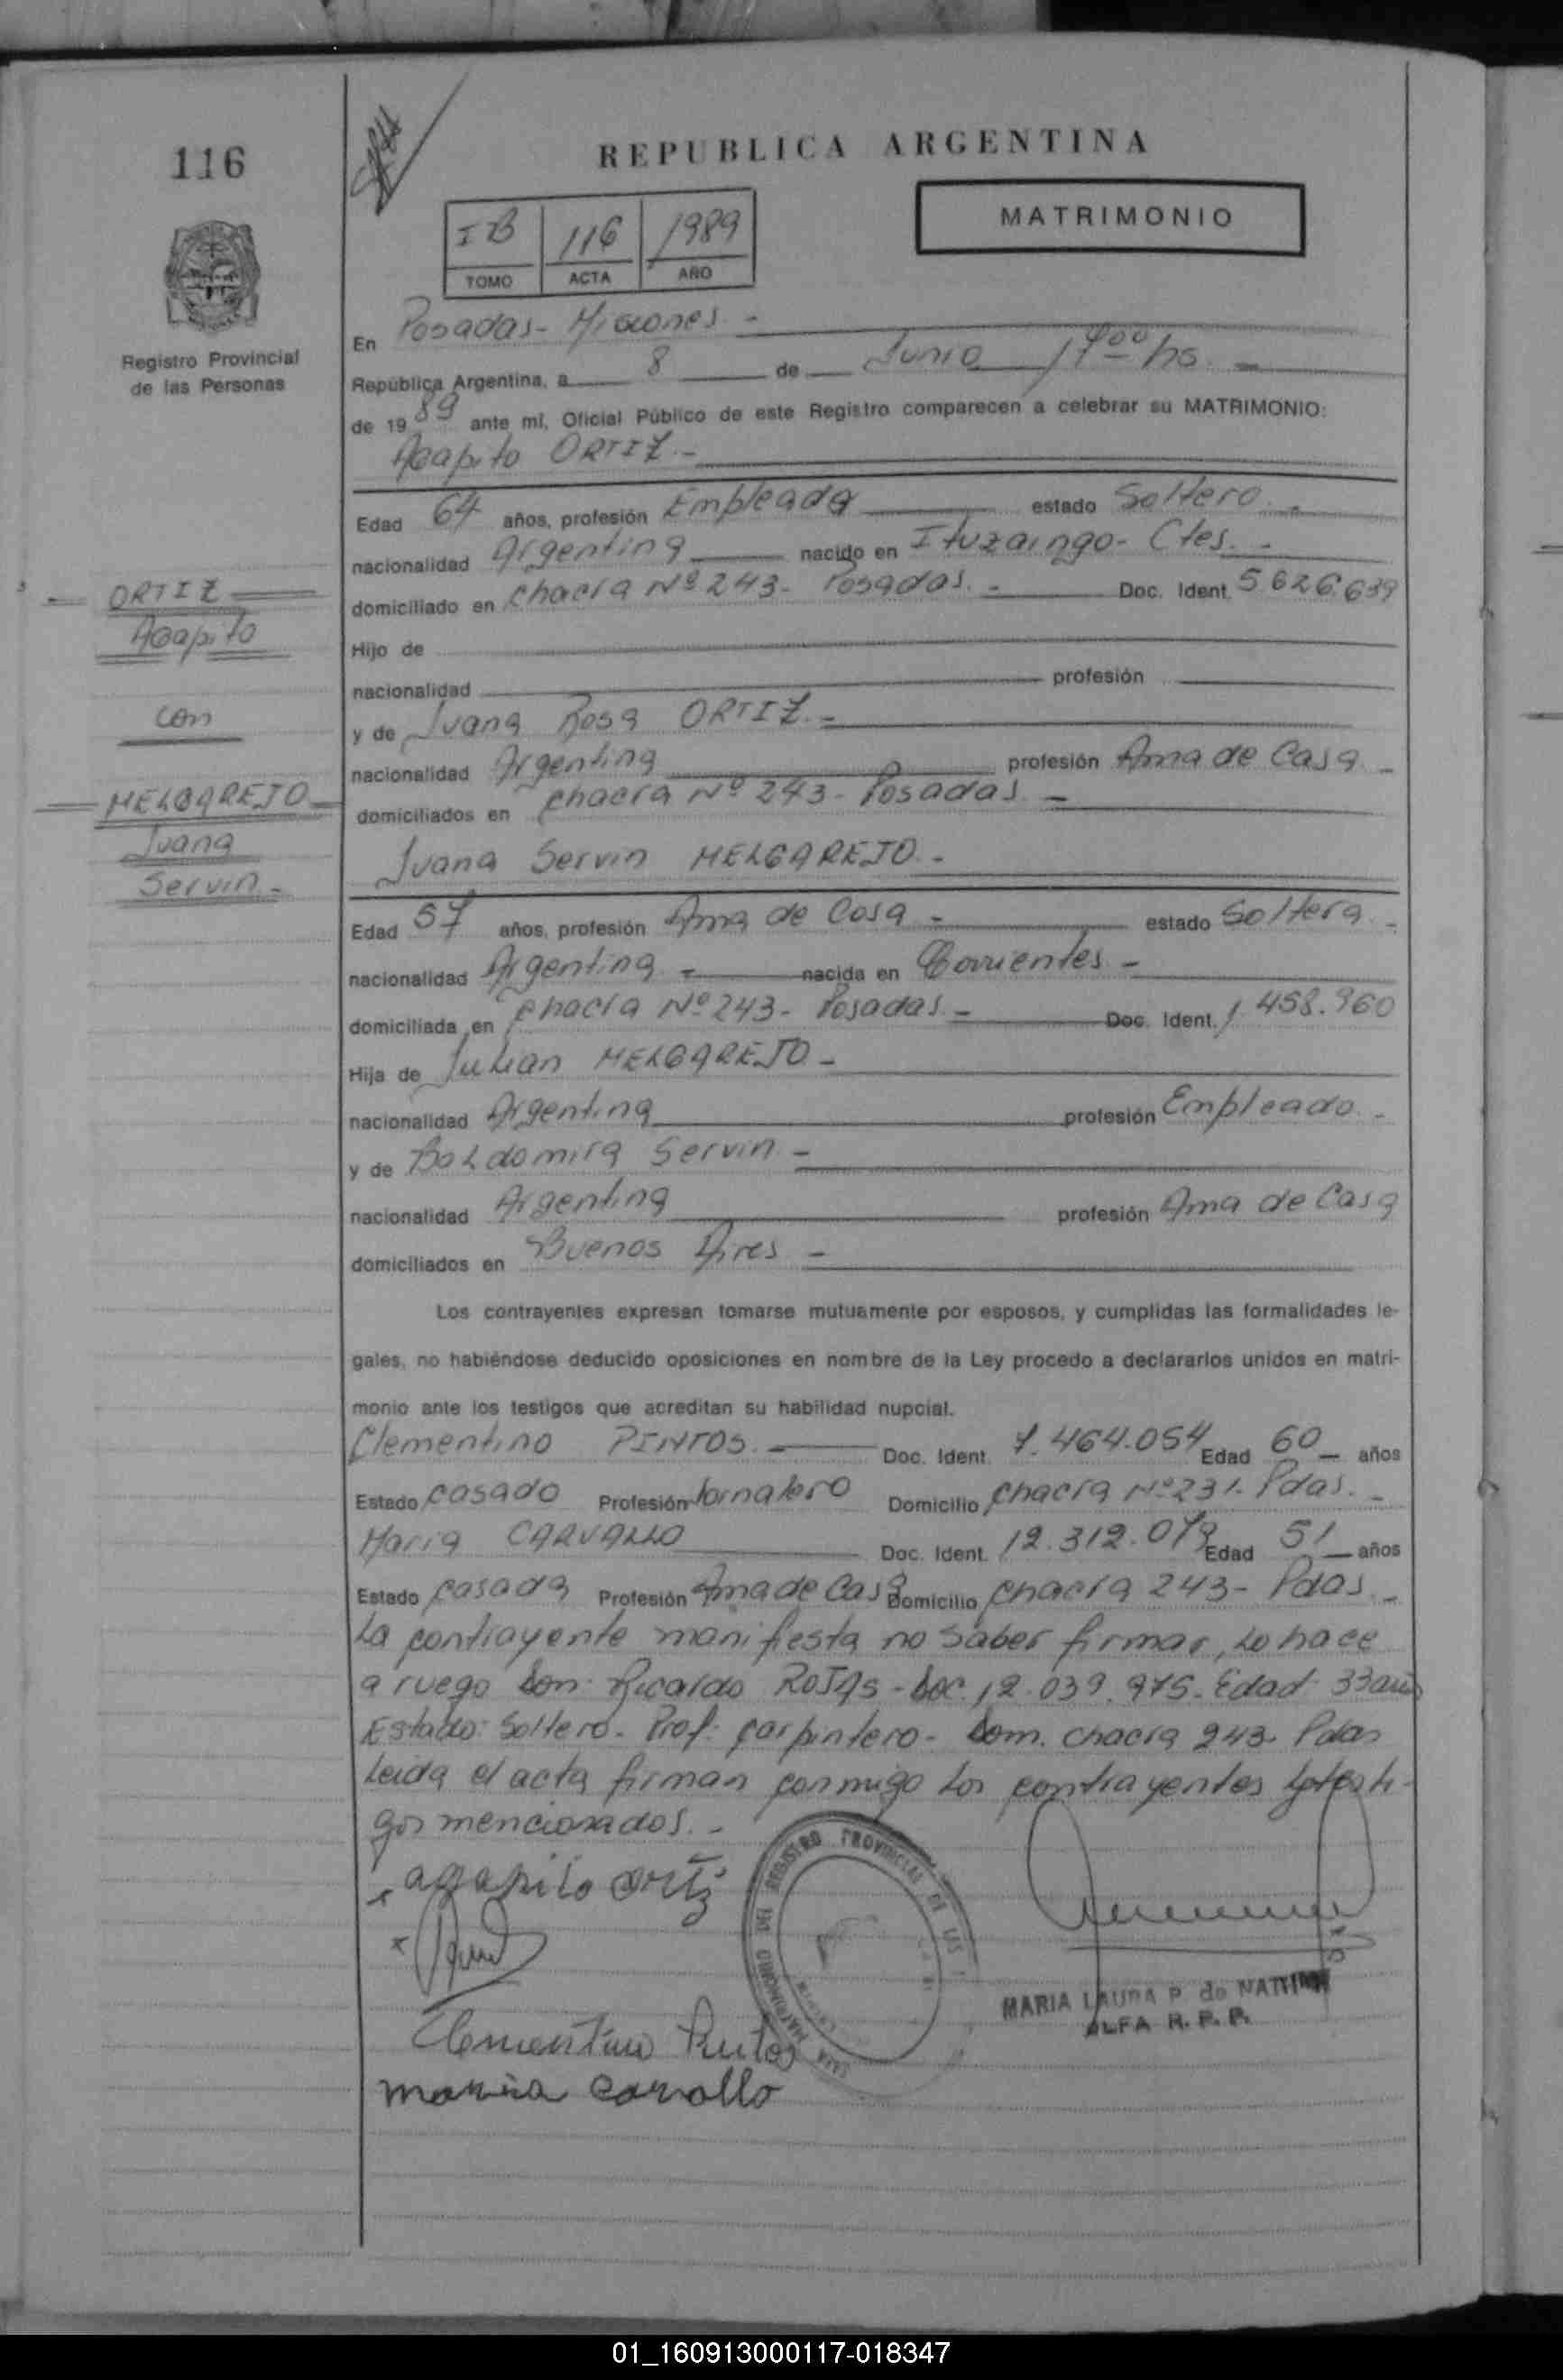 116
REPUBLICA ARGENTINA
MATRIMONIO
I B 116 1989
TOMO ACTA AÑO
Registro Provincial
de las Personas
En Posadas - Misiones -
República Argentina, a 8 de Junio hs. -
de 19 89 ante mí, Oficial Público de este Registro comparecen a celebrar su MATRIMONIO:
Agapito ORTIZ. -
Edad 64 años, profesión Empleada estado Soltero. -
nacionalidad Argentina nacido en Ituzaingo - Ctes. -
domiciliado en Chacra Nº 243 - Posadas. - Doc. Ident. 5.626.639
Hijo de
nacionalidad profesión
y de Juana Rosa ORTIZ. -
nacionalidad Argentina profesión Ama de Casa -
domiciliados en Chacra Nº 243 - Posadas -
ORTIZ
Agapito
con
MELGAREJO
Juana
Servin -
Juana Servin MELGAREJO. -
Edad 57 años, profesión Ama de Casa - estado Soltera. -
nacionalidad Argentina - nacida en Corrientes -
domiciliada en Chacra Nº 243 - Posadas - Doc. Ident. 1.458.960
Hija de Julian MELGAREJO -
nacionalidad Argentina profesión Empleado -
y de Boldomira Servin -
nacionalidad Argentina profesión Ama de Casa
domiciliados en Buenos Aires -
Los contrayentes expresan tomarse mutuamente por esposos, y cumplidas las formalidades le-
gales, no habiéndose deducido oposiciones en nombre de la Ley procedo a declararlos unidos en matri-
monio ante los testigos que acreditan su habilidad nupcial.
Clementino PINTOS. - Doc. Ident. 7.464.054 Edad 60 años
Estado Casado Profesión Jornalero Domicilio Chacra Nº 231 - Pdas. -
Maria CARVALLO Doc. Ident. 12.312.079 Edad 51 años
Estado Casada Profesión Ama de Casa Domicilio Chacra 243 - Pdas. -
La contrayente manifiesta no saber firmar, lo hace
a ruego Don: Ricardo ROJAS - Doc. 12.039.975. Edad: 33 años
Estado: Soltero - Prof: Carpintero - Dom. Chacra 243. Pdas
Leida el acta firman conmigo los contrayentes y testi-
gos mencionados. -
x agapito ortiz
x
Clementino Pintos
maria carvallo
REGISTRO PROVINCIAL DE LAS
MARIA LAURA P. de
R. P. P.
01_160913000117-018347